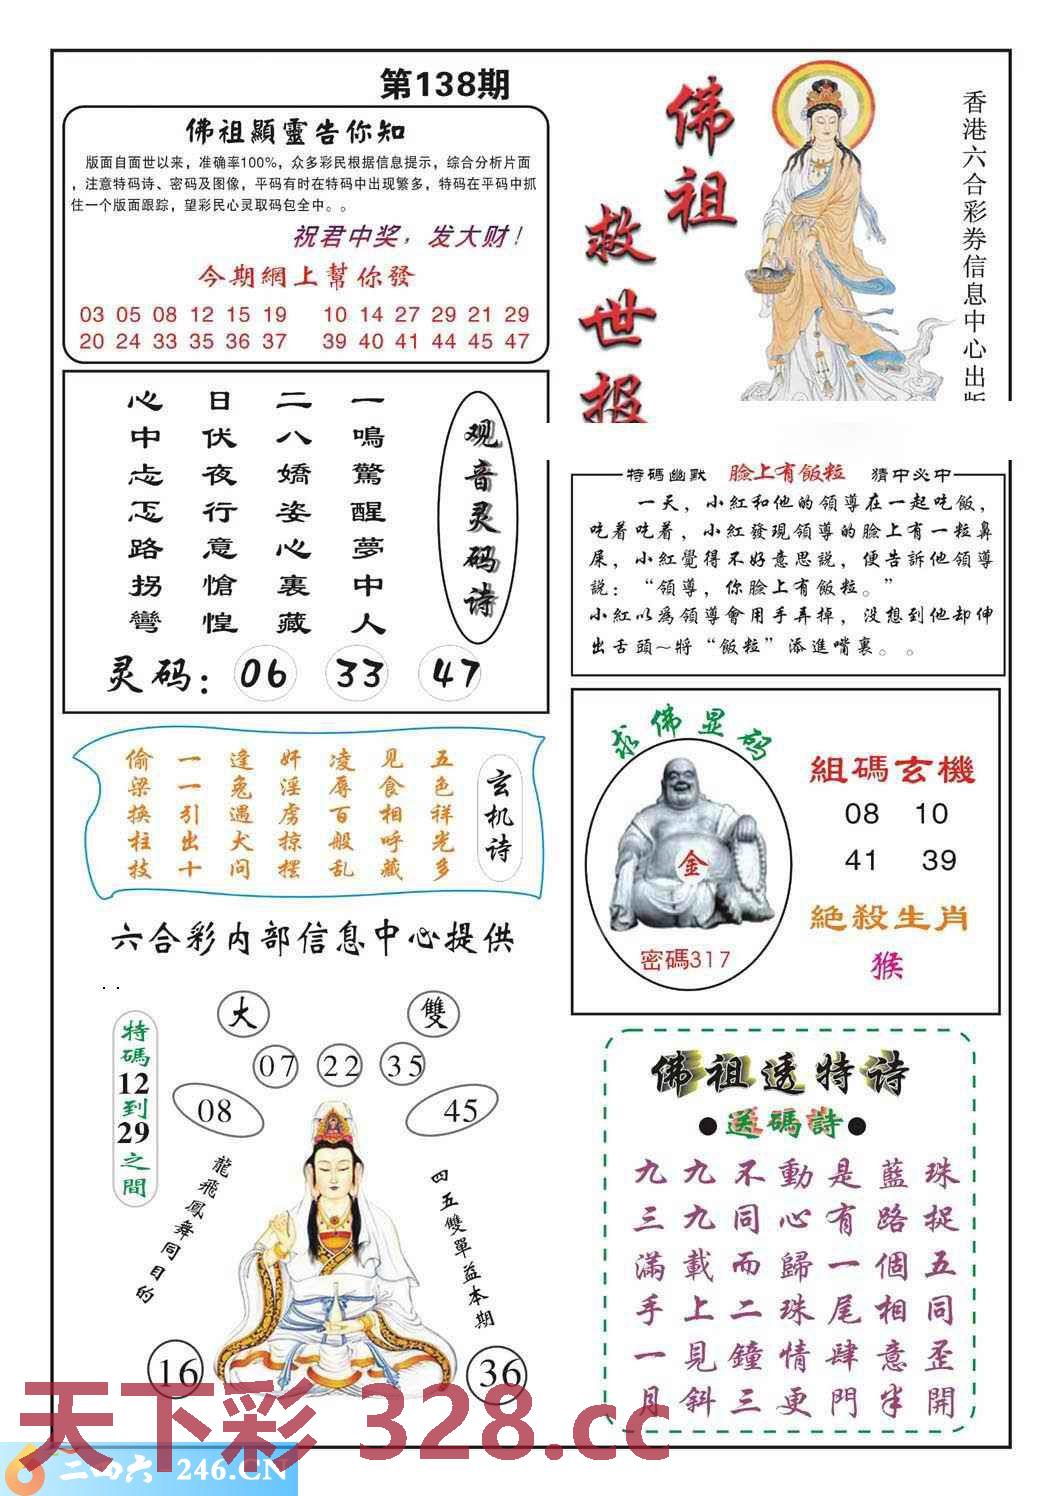 第138期
佛祖顯靈告你知
版面自面世以来，准确率100%，众多彩民根据信息提示，综合分析片面
，注意特码诗、密码及图像，平码有时在特码中出现繁多，特码在平码中抓
住一个版面跟踪，望彩民心灵取码包全中。。
祝君中奖，发大财！
今期網上幫你發
03 05 08 12 15 19 10 14 27 29 21 29
20 24 33 35 36 37 39 40 41 44 45 47
佛祖
救世报
香港六合彩券信息中心出版
观音灵码诗
一鳴驚醒夢中人
二八嬌姿心裏藏
日伏夜行意愴惶
心中忐忑路拐彎
灵码：06 33 47
特碼幽默 臉上有飯粒 猜中必中
一天，小紅和他的領導在一起吃飯，
吃着吃着，小紅發現領導的臉上有一粒鼻
屎，小紅覺得不好意思說，便告訴他領導
説：“領導，你臉上有飯粒。”
小紅以為領導會用手弄掉，没想到他却伸
出舌頭～將“飯粒”添進嘴裏。。
玄机诗
五色祥光多
见食相呼藏
凌辱百般乱
奸淫虏掠摆
逢兔遇犬问
一一引出十
偷梁换柱技
求佛显码
金
密碼317
組碼玄機
08 10
41 39
絕殺生肖
猴
六合彩内部信息中心提供
..
大 雙
07 22 35
08 45
特碼12到29之間
龍飛鳳舞同目的
四五雙單益本期
16 36
佛祖透特诗
●送碼詩●
九九不動是藍珠
三九同心有路捉
滿載而歸一個五
手上二珠尾相同
一見鐘情肆意歪
月斜三更門半開
天下彩 328.cc
二四六 246.CN